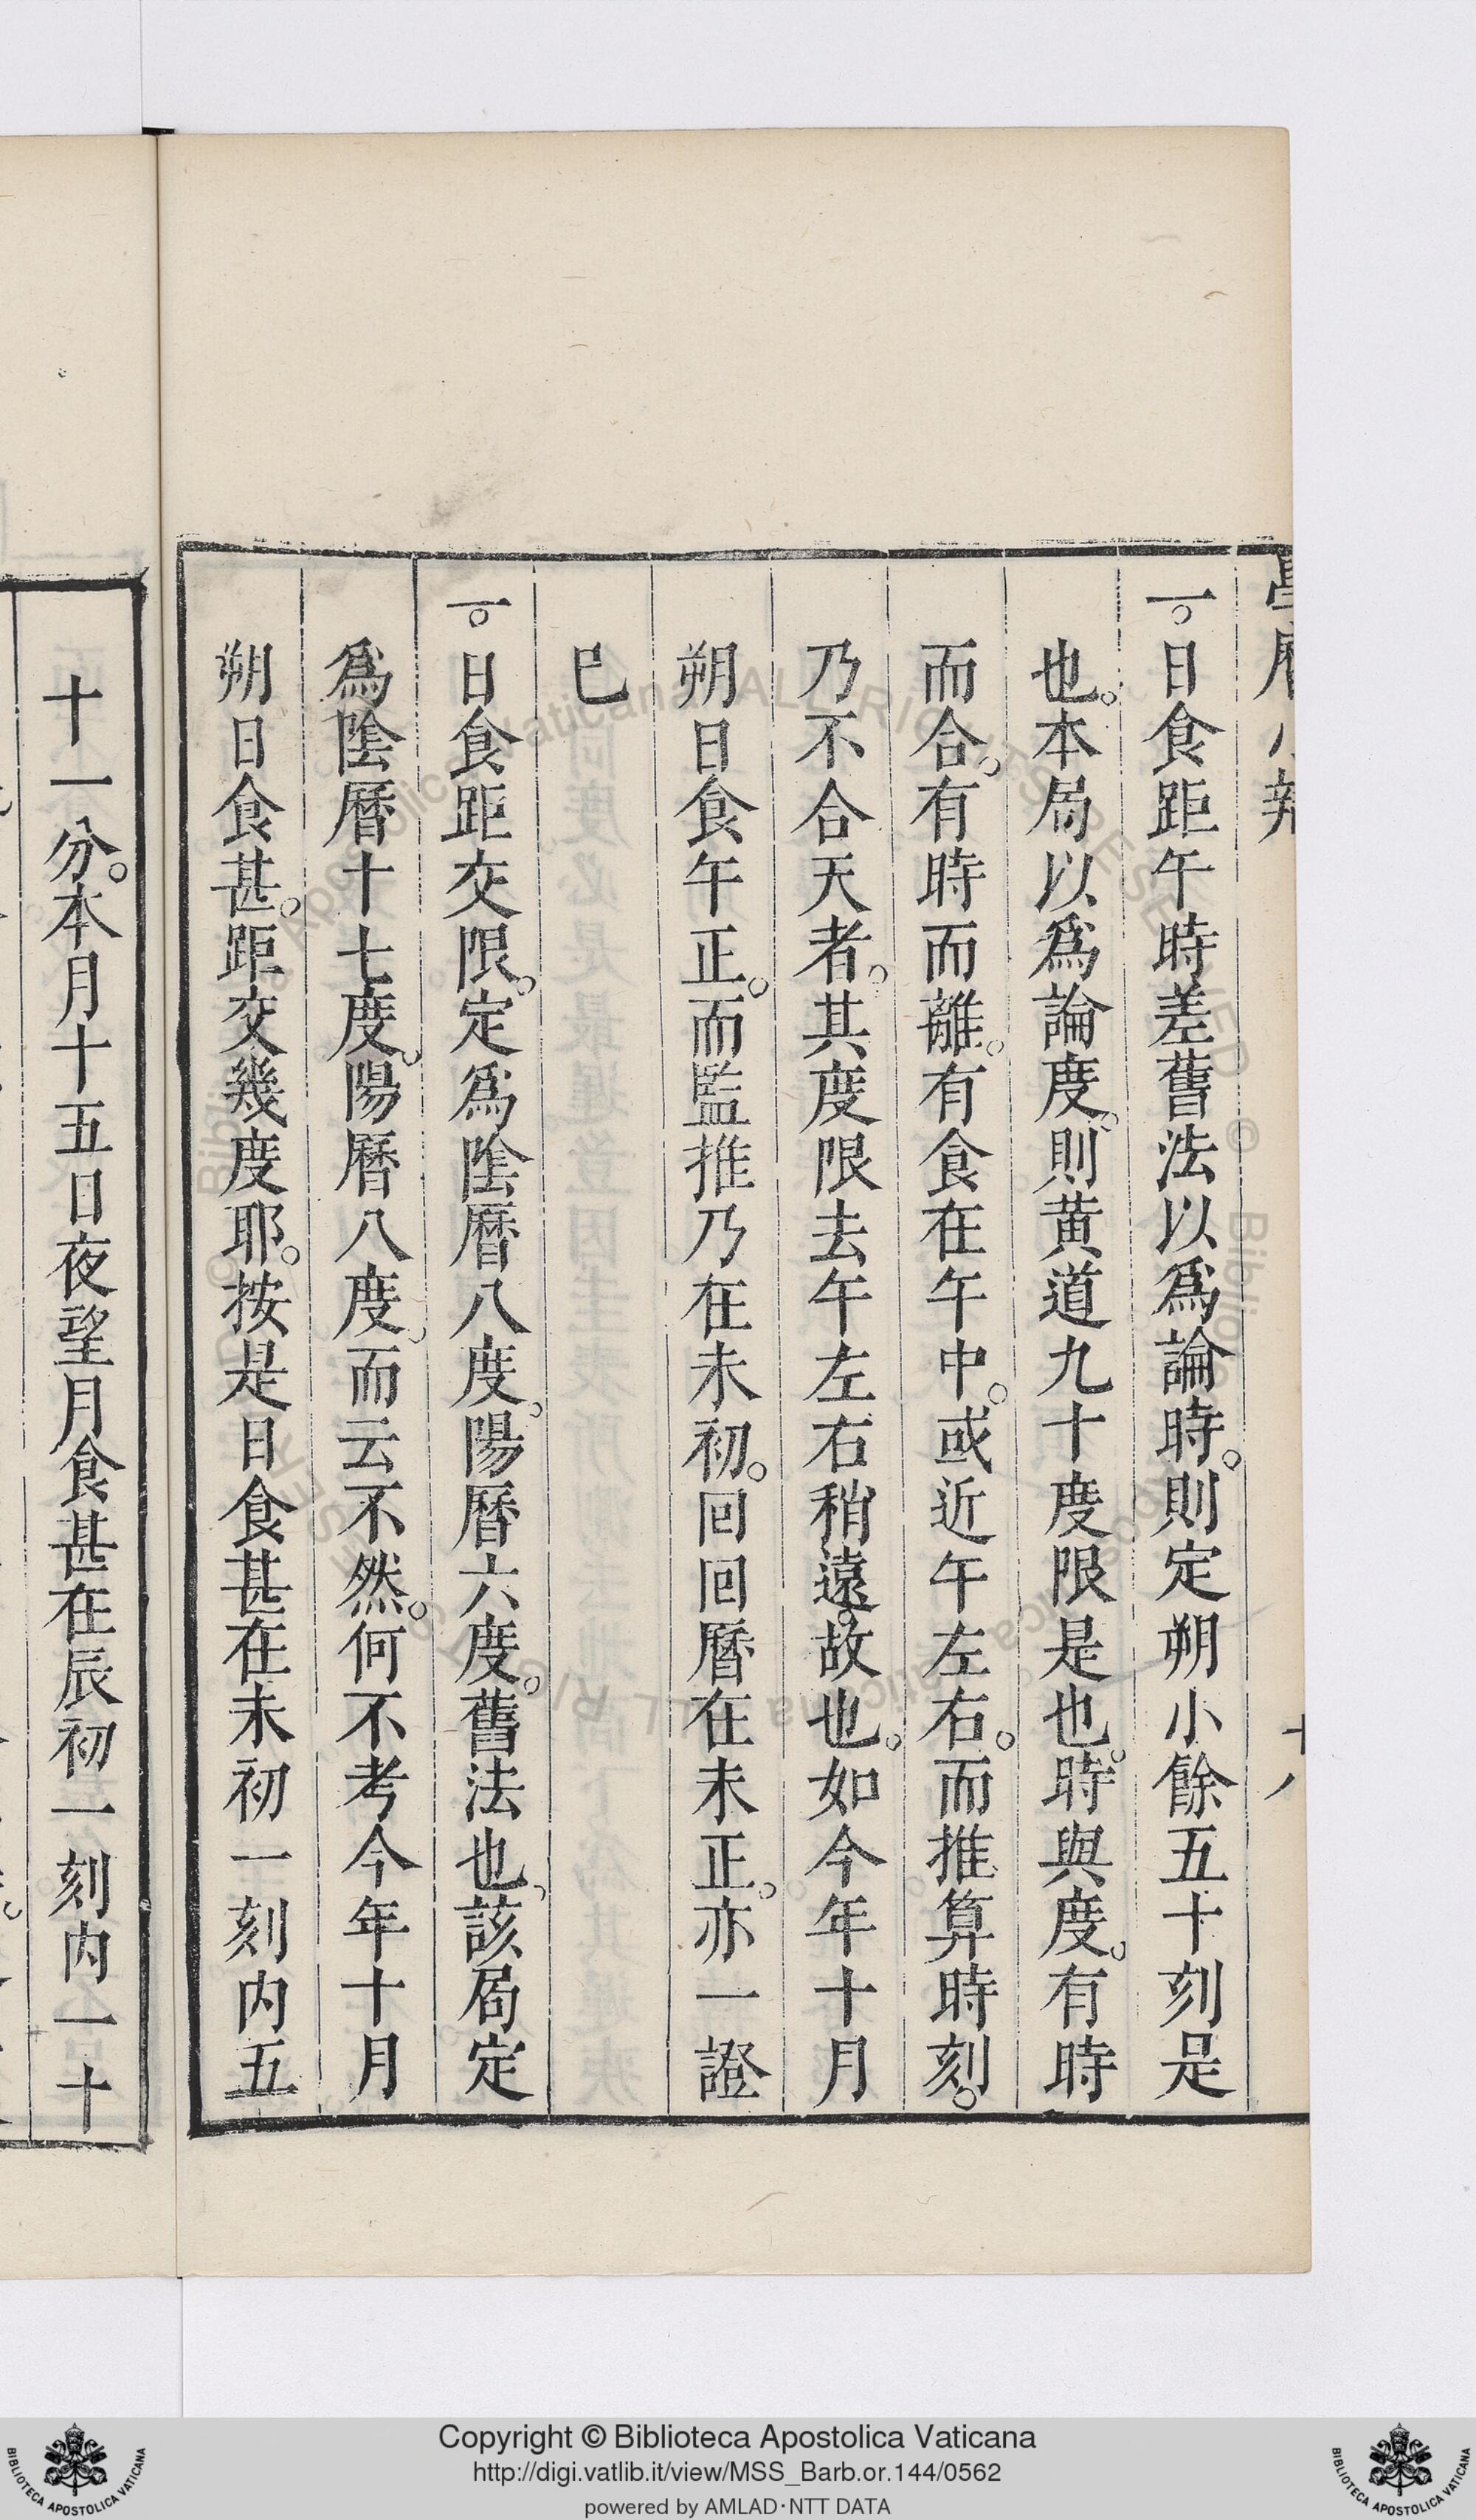 一。日食距午時差舊法以爲論時。則定朔小餘五十刻是
也。本局以爲論度。則黄道九十度限是也。時與度。有時
而合。有時而離。有食在午中。或近午左右。而推算時刻。
乃不合天者。其度限去午左右稍遠。故也。如今年十月
朔日食午正。而監推乃在未初。回回曆在未正。亦一證
巳
一。日食距交限。定爲陰曆八度。陽曆六度。舊法也。該局定
爲陰曆十七度。陽曆八度。而云不然。何不考今年十月
朔日食甚。距交幾度耶。按是日食甚在未初一刻内五
十一分。本月十五日夜望月食甚在辰初一刻内一十
Copyright © Biblioteca Apostolica Vaticana
http://digi.vatlib.it/view/MSS_Barb.or.144/0562
powered by AMLAD·NTT DATA
BIBLIOTECA APOSTOLICA VATICANA
BIBLIOTECA APOSTOLICA VATICANA